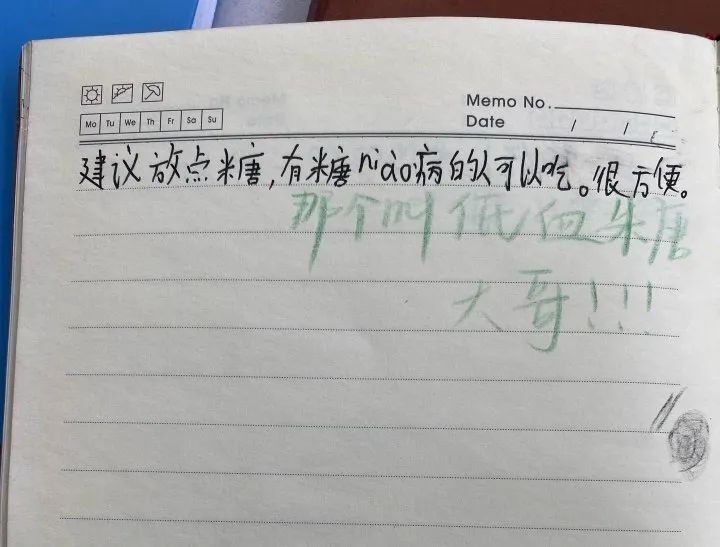 Memo No.
Mo Tu We Th Fr Sa Su
Date / /
建议放点糖,有糖niào病的人可以吃。很方便。
那个叫低血糖
大哥!!!